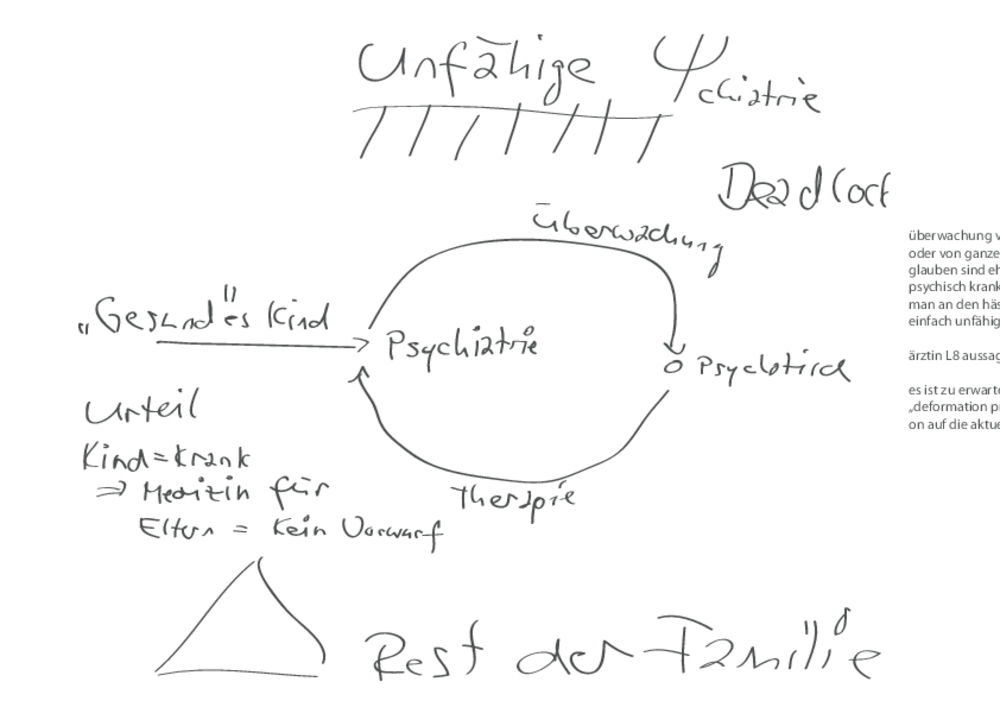 Unfähige Ψchiatrie
Deadlock
Überwachung
„Gesund"es Kind
Psychiatrie
Psychotisch
Urteil
Kind = krank
⇒ Medizin für
Eltern = Kein Vorwurf
Therapie
Rest der Familie
überwachung v
oder von ganze
glauben sind eh
psychisch krank
man an den häs
einfach unfähig
ärztin L8 aussag
es ist zu erwarte
„deformation p
on auf die aktue